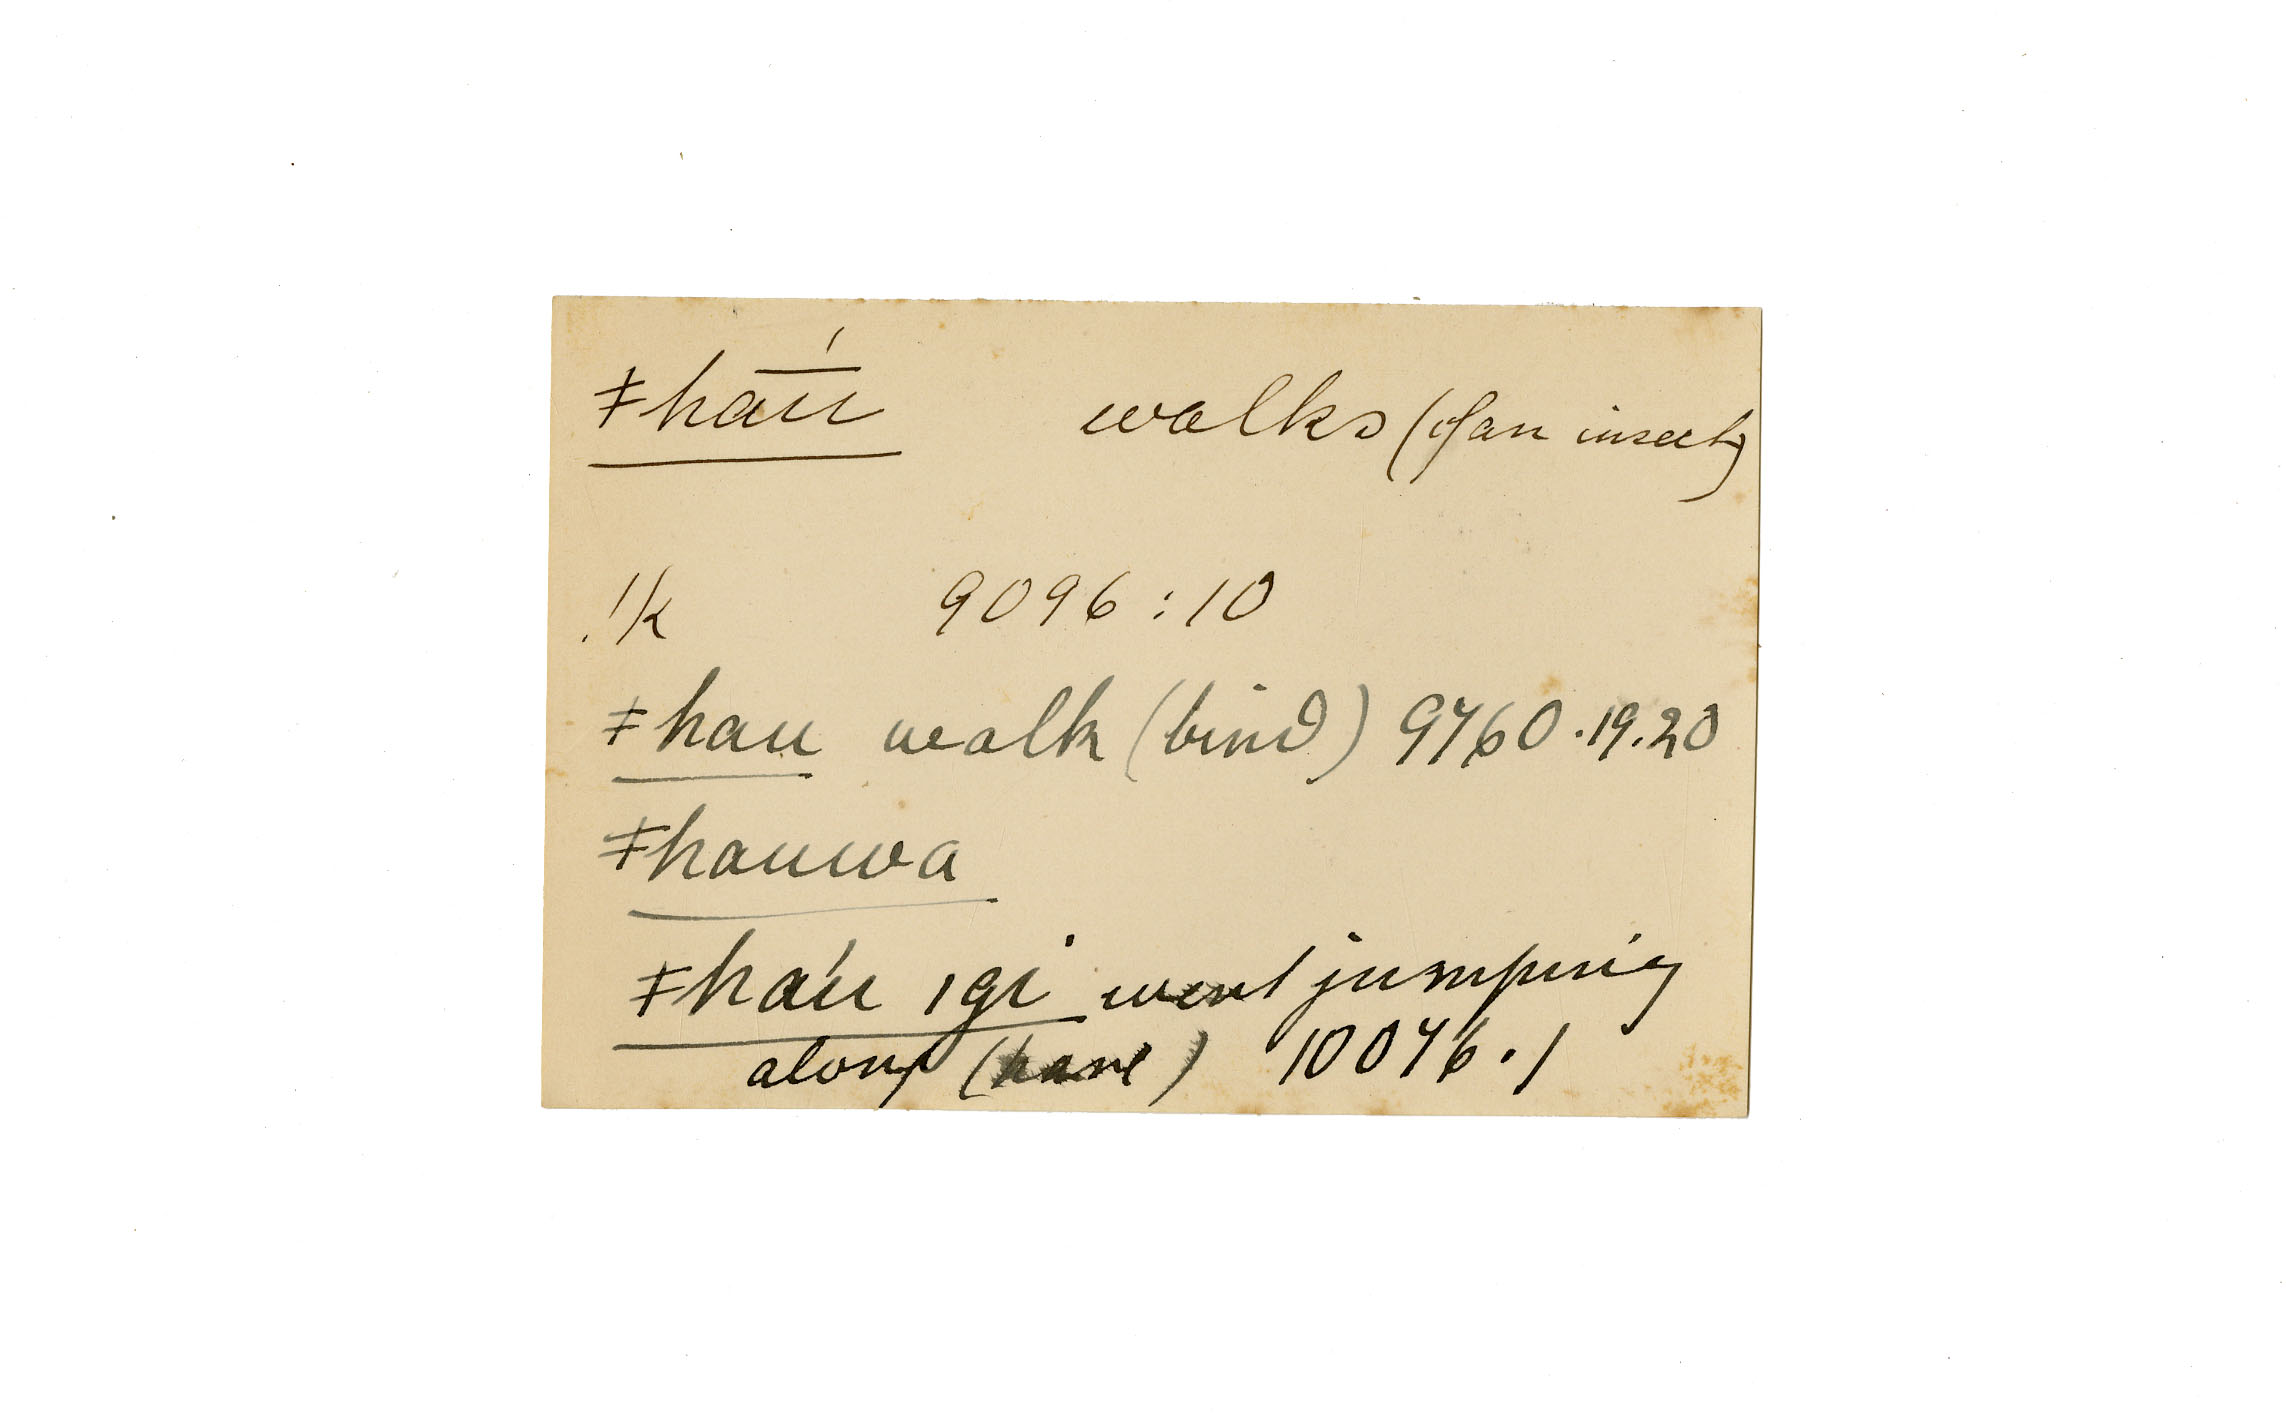 ǂha̅́u walks (of an insect)
!k 9096:10
ǂhau walk (bird) 9760.19.20
ǂhauwa
ǂháu ıgi went jumping
along (hare) 10076.1